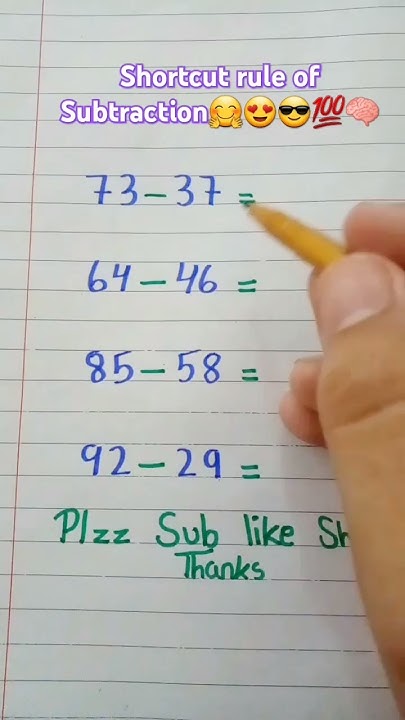 Shortcut rule of
Subtraction🤗😍😎💯🧠
73-37=
64-46=
85-58=
92-29=
Plzz Sub like
Thanks